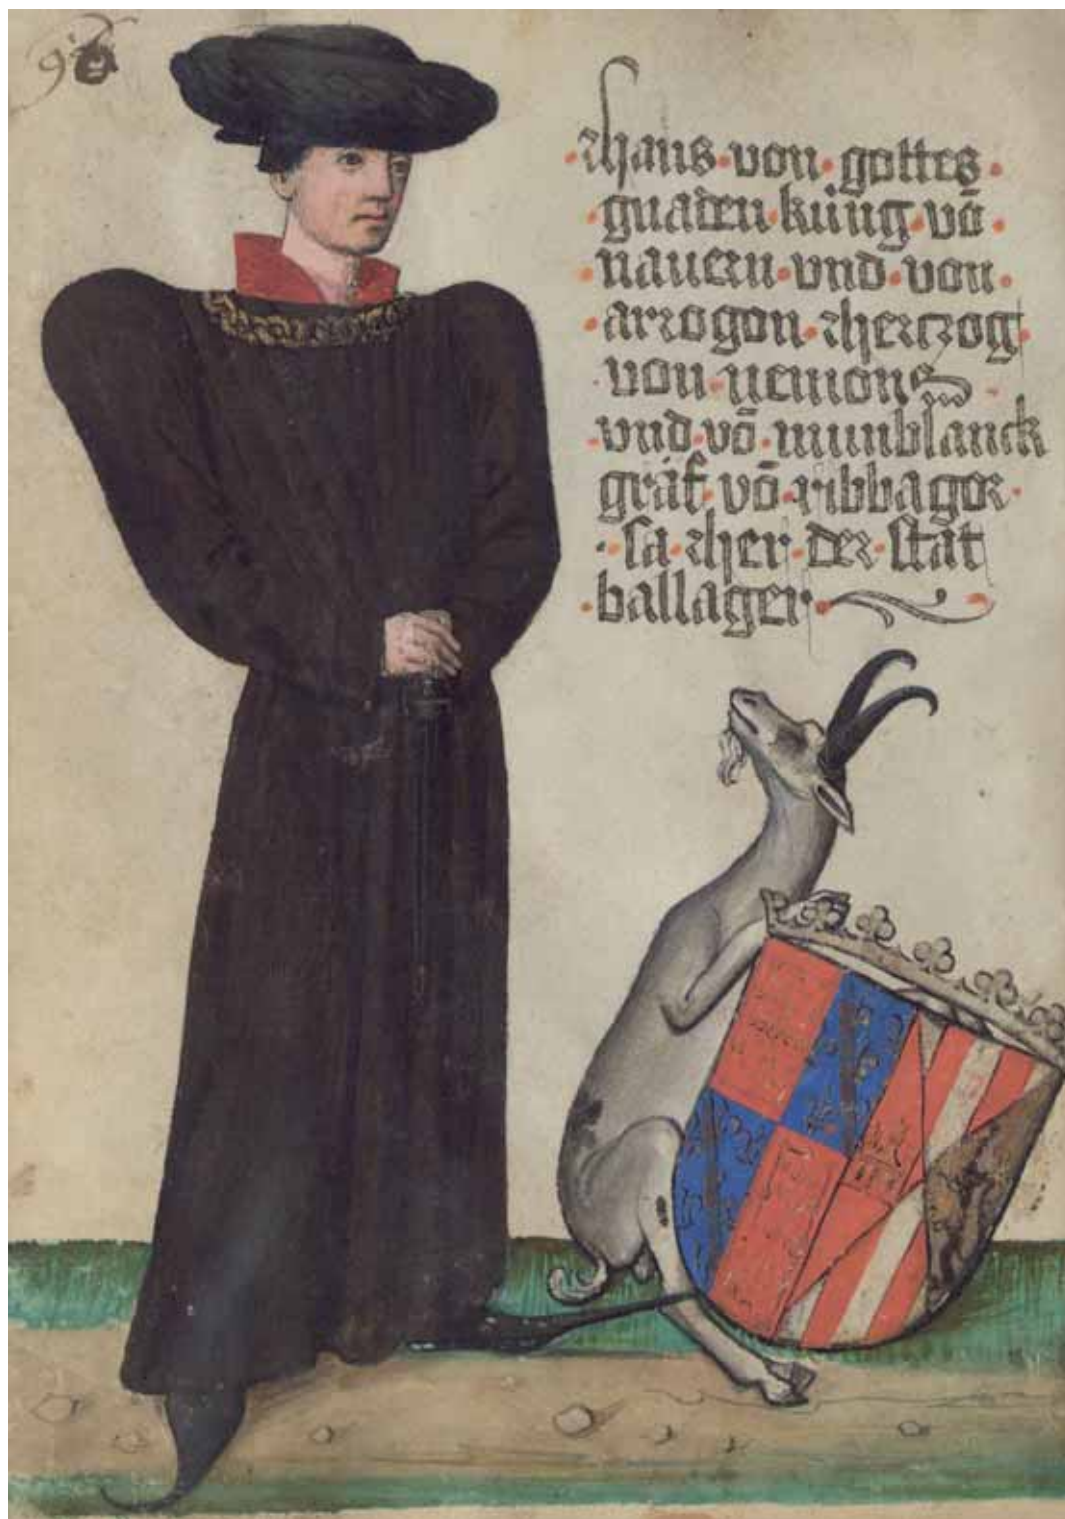 ·hans·von·gottes·
·gnaden·küng·võ·
·nauern·vnd·von·
·arrogon·herczog·
·von·nemons·
·vnd·võ·munblanck
graf·võ·ribbagor·
·sa·her·der·stat
·ballager·